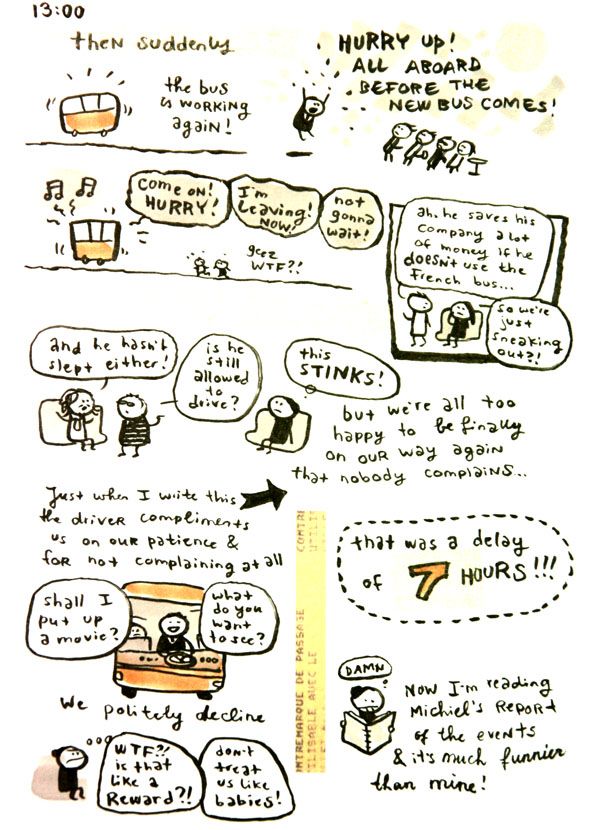 13:00
then suddenly
the bus
is working
again!
HURRY UP!
ALL ABOARD
BEFORE THE
NEW BUS COMES!
Come on!
HURRY!
I'm
Leaving!
NOW!
not
gonna
wait!
geez
WTF?!
ah. he saves his
company a lot
of money if he
doesn't use the
French bus...
so we're
just
sneaking
out?!
and he hasn't
slept either!
is he
still
allowed
to
drive?
this
STINKS!
but we're all too
happy to be finally
on our way again
that nobody complains...
Just when I write this
the driver compliments
us on our patience &
for not complaining at all
shall I
put up
a movie?
what
do you
want
to see?
We politely decline
WTF?!
is that
like a
Reward?!
don't
treat
us like
babies!
CONTRE
NTREMARQUE DE PASSAGE
ILISABLE AVEC LE
that was a delay
of 7 HOURS!!!
DAMN
Now I'm reading
Michiel's Report
of the events
& it's much funnier
than mine!